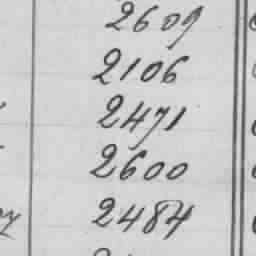 2609
2106
2471
2600
2484